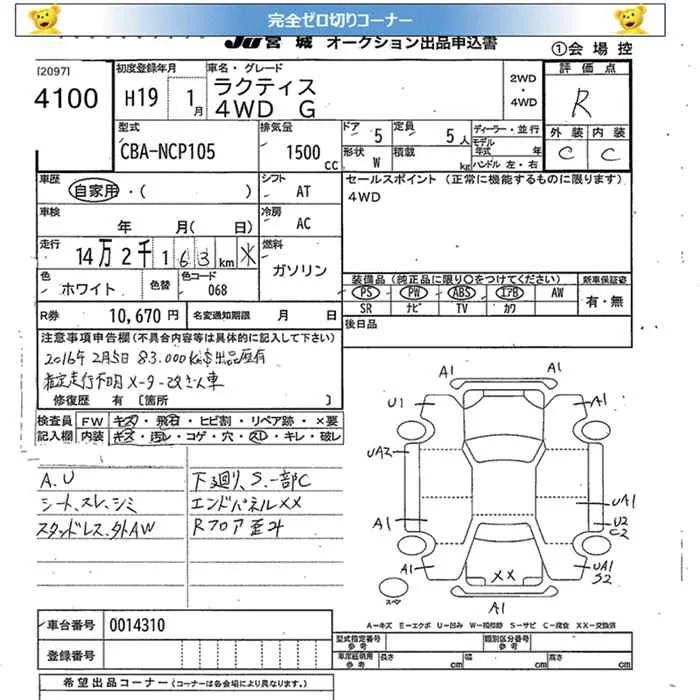 完全ゼロ切りコーナー
JU宮城 オークション出品申込書
①会場控
[2097]
4100
初度登録年月
H19 1月
車名・グレード
ラクティス
4WD G
2WD
・
4WD
評価点
R
外装 内装
C C
型式
CBA-NCP105
排気量
1500 cc
ドア 5
定員 5人
形状 W
積載 kg
ディーラー・並行
モデル年式 年
ハンドル 左・右
車歴
自家用・( )
シフト
AT
セールスポイント (正常に機能するものに限ります)
4WD
車検
年 月( 日)
冷房
AC
走行
14万2千163km ※
燃料
ガソリン
色
ホワイト
色替
色コード
068
装備品(純正品に限り○をつけてください)
新車保証書
PS PW ABS エアB AW
有・無
SR ナビ TV カワ
R券 10,670円
名変通知期限 月 日
後日品
注意事項申告欄(不具合内容等は具体的に記入して下さい)
2016年2月5日 83.000km$出品歴有
走行不明 メーター改ざん車
修復歴 有 [箇所 ]
検査員記入欄
FW キズ・飛石・ヒビ割・リペア跡・×要
内装 キズ・汚レ・コゲ・穴・スレ・キレ・破レ
A.U
シート、スレ、シミ
スタッドレス、外AW
下廻り、S.一部C
エンドパネルXX
Rフロア歪み
A1
A1
U1
A1
UA2
UA1
A1
U2
C2
A1
UA1
S2
XX
A1
スペア
A-キズ E-エクボ U-凹み W-補修跡 S-サビ C-腐食 XX-交換済
車台番号
0014310
登録番号
型式指定番号
参考
類別区分番号
参考
参考
長さ cm
幅 cm
高さ cm
希望出品コーナー(コーナーは各会場により異なります)